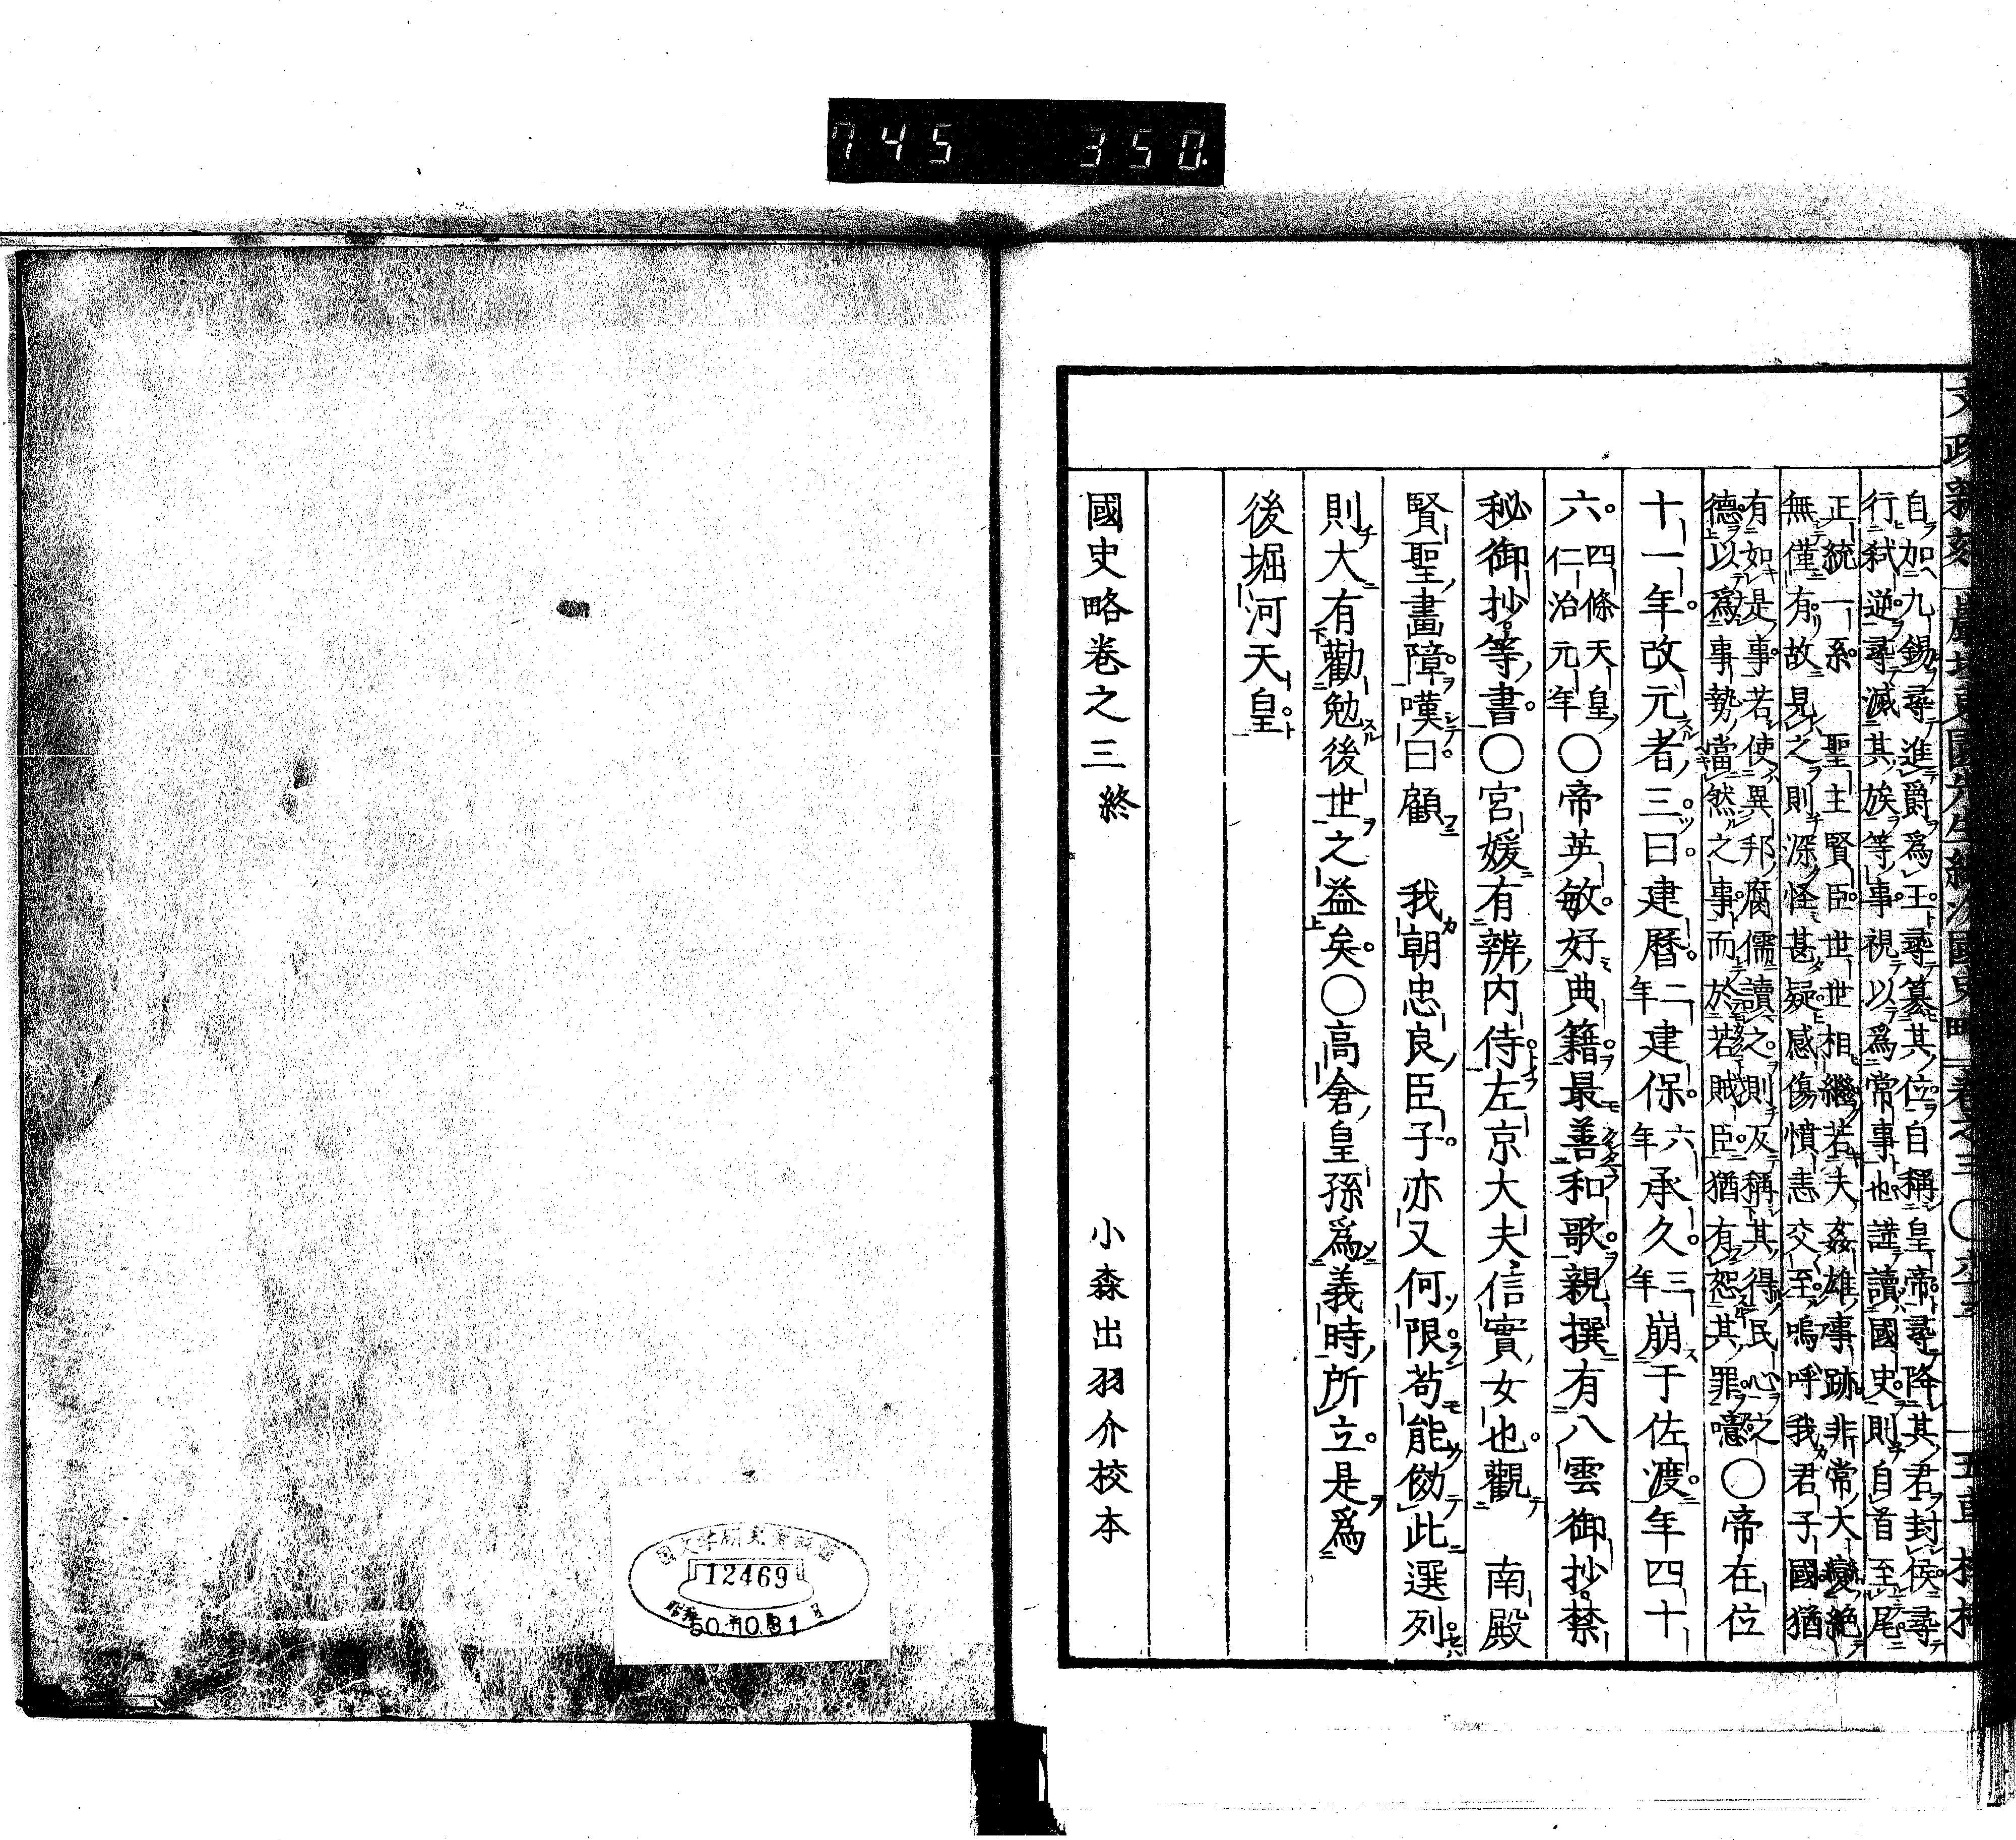 745 350.
自加九錫尋進爵為王尋簒其位自稱皇帝尋降其君封侯尋
行弑逆尋滅其族等事視以為常事也謹讀國史則自首至尾
正統一系 聖主賢臣世世相繼若夫姦雄事跡非常大變絕
無僅有故見之則深怪甚疑感傷憤恚交至嗚呼我君子國猶
有如是事若使異邦腐儒讀之則反稱其得民心之
德以為事勢當然之事而於若賊臣猶有恕其罪噫
○帝在位
十一年改元者三曰建曆二年建保六年承久三年崩于佐渡年四十
六四條天皇仁治元年○帝英敏好典籍最善和歌親撰有八雲御抄禁
秘御抄等書○宮媛有辨内侍左京大夫信實女也觀 南殿
賢聖畫障嘆曰顧 我朝忠良臣子亦又何限苟能傚此選列
則大有勸勉後世之益矣○高倉皇孫為義時所立是為
後堀河天皇
國史略卷之三終 小森出羽介校本
12469
50.10.31